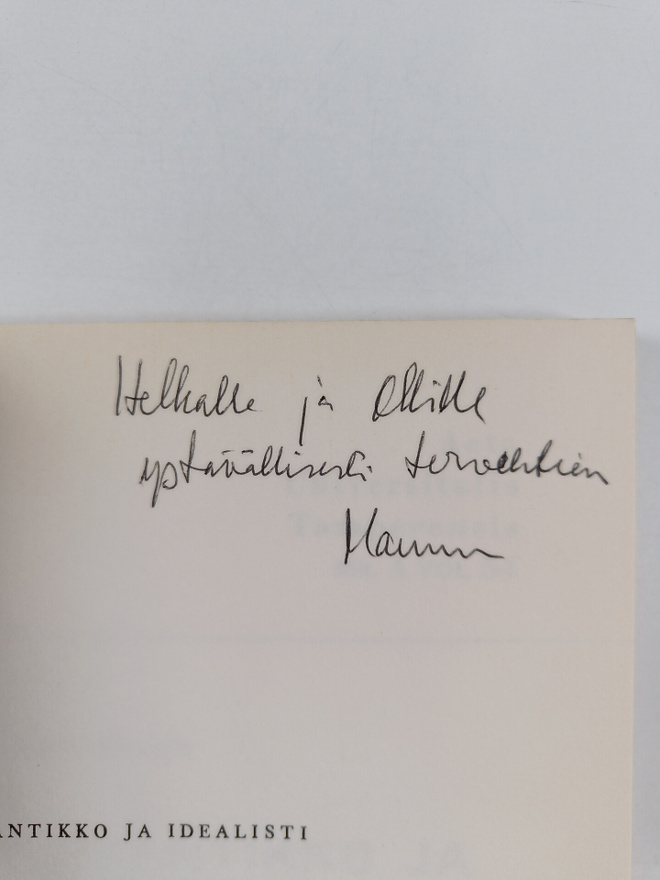 Helkalle ja Ollille
ystävällisesti tervehtien
Hannu
ANTIKKO JA IDEALISTI